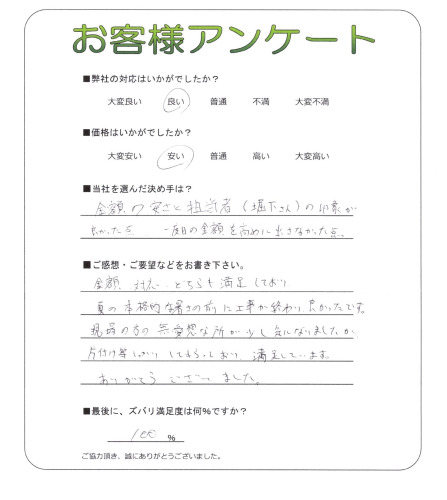 お客様アンケート
■弊社の対応はいかがでしたか?
大変良い 良い 普通 不満 大変不満
■価格はいかがでしたか?
大変安い 安い 普通 高い 大変高い
■当社を選んだ決め手は?
金額の安さと担当者(堀下さん)の印象が
良かった点 一度目の金額を高めに出さなかった点。
■ご感想・ご要望などをお書き下さい。
金額、対応、どちらも満足しており
夏の本格的な暑さの前に工事が終わり良かったです。
現場の方の無愛想な所が少し気になりましたが
片付け等しっかりしてもらっており、満足しています。
ありがとうございました。
■最後に、ズバリ満足度は何%ですか?
100 %
ご協力頂き、誠にありがとうございました。